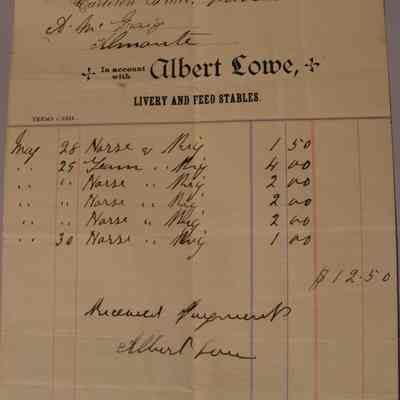 Carleton
A. McGraig
Almonte
In account with Albert Lowe,
LIVERY AND FEED STABLES.
TERMS CASH.
May 28 Horse & Rig 1 50
" 29 Team " Rig 4 00
" " Horse " Rig 2 00
" " Horse " Rig 2 00
" " Horse " Rig 2 00
" 30 Horse " Rig 1 00
$12.50
Received Payment
Albert Lowe